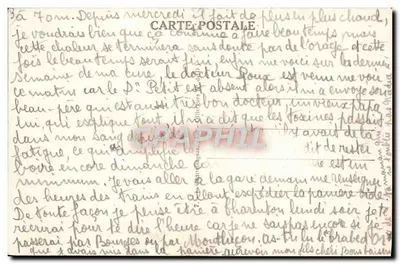 3à 70m. Depuis mercredi il fait de plus en plus chaud,
CARTE POSTALE
je voudrais bien que ça continue à faire beau temps mais
cette chaleur se terminera sans doute par de l'orage et cette
fois le beau temps serait fini, enfin me voici sur la dernière
semaine de ma cure, le docteur Roux est venu me voir
ce matin car le Dr Petit est absent alors il m'a envoyé son
beau-père qui est aussi très bon docteur, un vieux papa
lui, qui explique tout, il m'a dit que les toxines passaient
dans mon sang y avait de la
fatigue, ce qui dit de rester
boire encore dimanche est un
minimum. Je vais aller à la gare demain me renseigner
des heures des trains en allant expédier la panière vide
De toute façon je pense être à Charenton lundi soir, je te
récrirai pour te dire l'heure car je ne sais pas encore si je
passerai par Bourges ou par Montluçon. as-tu lu
que j'avais mis dans la panière mon fils chéri bons baisers